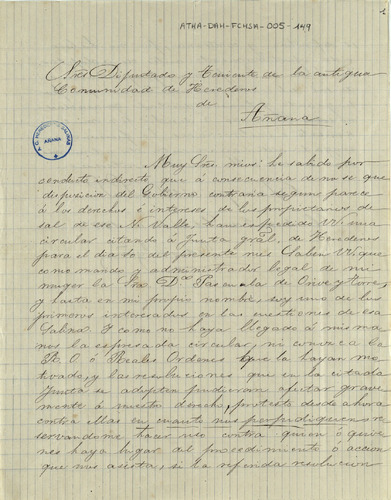 1
ATHA-DAH-FCHSA-005-149
Sres Diputado y Teniente de la antigua
Comunidad de Herederos
de
Añana
AÑANA
Muy Sres. mios: he sabido por
conducto indirecto que á consecuencia de no se que
disposicion del Gobierno contraria segun parece
á los derechos e intereses de los propietarios de
sal de ese R. Valle, han espedido VV una
circular citando á Junta gral. de Herederos
para el dia 10. del presente mes. Saben VV que
como marido y administrador legal de mi
muger la Sra. Dª Pascuala de Orive y Torre,
y hasta en mi propio nombre, soy uno de los
primeros interesados en las cuestiones de esa
Salina. Y como no haya llegado á mis ma
nos la espresada circular, ni conozca la
R. O. ó Reales Ordenes que la hayan mo
tivado, y las resoluciones que en la citada
Junta se adopten pudieran afectar grave
mente á nuestro derecho, protesto desde ahora
contra ellas en cuanto nos perjudiquen re
servandome hacer uso contra quien ó quie
nes haya lugar del procedimiento ó accion
que nos asista, si la referida resolucion